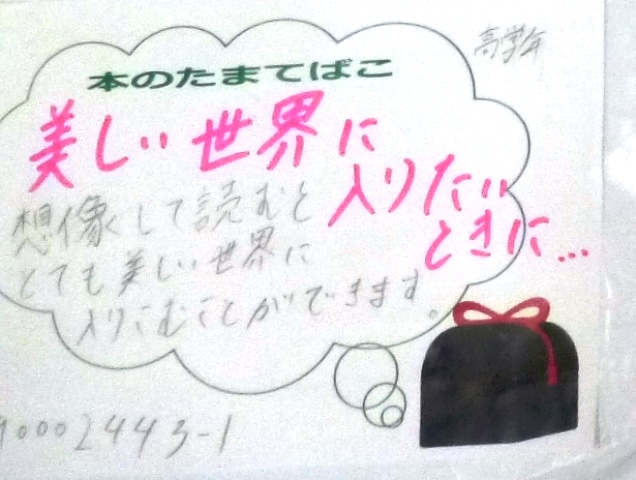 高学年
本のたまてばこ
美しい世界に
入りたい
ときに…
想像して読むと
とても美しい世界に
入りこむことができます。
90002443-1